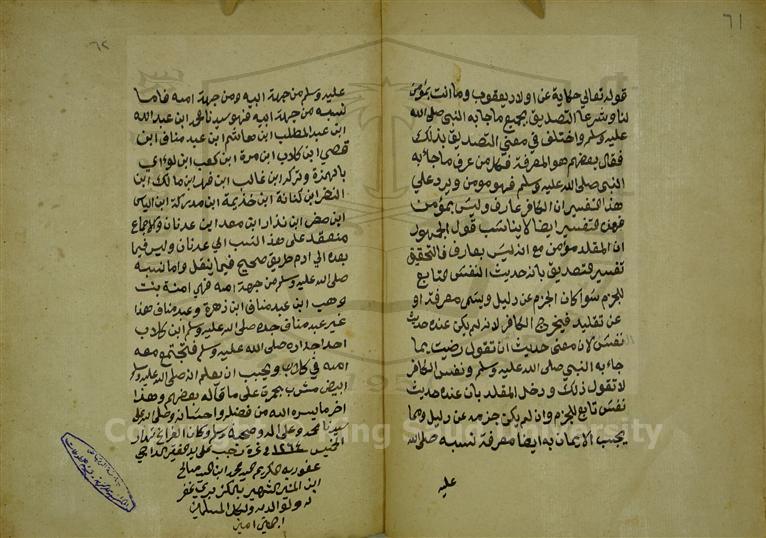 ٦١
قوله تعالي حكاية عن اولاد يعقوب وما انت بمؤمن
لنا وشرعا التصديق بجميع ما جاء به النبي صلى الله
عليه وسلم واختلف في معنى التصديق بذلك
فقال بعضهم هو المعرفة فكل من عرف ما جاء به
النبي صلى الله عليه وسلم فهو مومن ويرد علي
هذا التفسير ان الكافر عارف وليس بمؤمن
فهذه التفسير ايضا لا يناسب قول الجمهور
ان المقلد مؤمن مع انه ليس بعارف فالتحقيق
تفسير التصديق بانه حديث النفس التابع
للجزم سوا كان الجزم عن دليل ويسمى معرفة او
عن تقليد فيخرج الكافر لانه لم يكن عنده حديث
نفس لان معنى حديث ان تقول رضيت بما
جاء به النبي صلى الله عليه وسلم ونفس الكافر
لا تقول ذلك ودخل المقلد بان عنده حديث
نفس تابع للجزم وان لم يكن جزمه عن دليل ومما
يجب الايمان به ايضا معرفة نسبه صلى الله
عليه
٦٢
عليه وسلم من جهة ابيه ومن جهة امه فاما
نسبه من جهة ابيه فهو سيدنا محمد ابن عبد الله
ابن عبد المطلب ابن هاشم ابن عبد مناف ابن
قصي ابن كلاب ابن مرة ابن كعب ابن لوءاي
بالهمزة وتركه ابن غالب ابن فهر ابن مالك ابن
النضر ابن كنانة ابن خذيمة ابن مدركة ابن الياس
ابن مضر ابن نذار ابن معد ابن عدنان والاجماع
منعقد على هذ النسب الي عدنان وليس فيما
بعده الي ادم طريق صحيح فيما ينقل واما نسبه
صلى الله عليه وسلم من جهة امه فهي امنة بنت
وهب ابن عبد مناف ابن زهرة وعبد مناف هذا
غير عبد مناف جده صلى الله عليه وسلم ابن كلاب
احد اجداده صلى الله عليه وسلم فتجتمع معه
امه في كلاب ويجب ان يعلم انه صلى الله عليه وسلم
ابيض مشرب بحمرة على ما قاله بعضهم وهذا
اخر ما يسره الله من فضله واحسانه وصلى الله على
سيدنا محمد وعلى اله وصحبه وسلم وكان الفراغ نهار
الخميس ١٢٦٤ في غرة رجب على يد الراجي
عفو ربه الكريم محمد ابن صالح
ابن الشهير غفر
له ولوالديه ولكل المسلمين
اجمعين امين
Copyright © King Saud University
1957